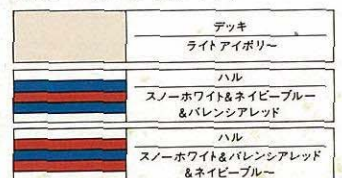 デッキ
ライトアイボリー
ハル
スノーホワイト&ネイビーブルー
&バレンシアレッド
ハル
スノーホワイト&バレンシアレッド
&ネイビーブルー